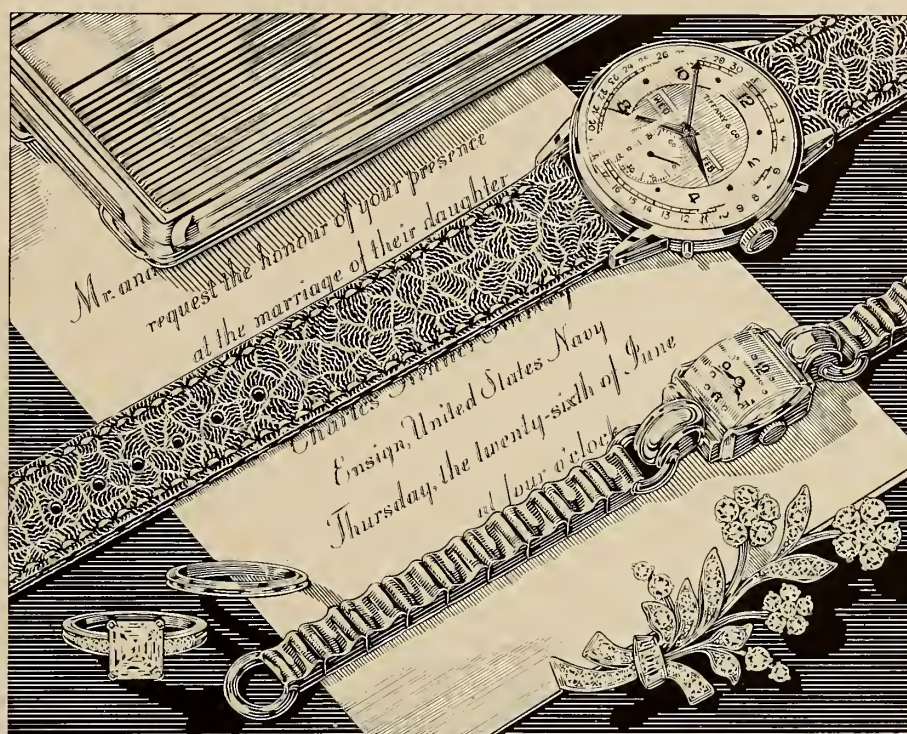 Mr. and
request the honour of your presence
at the marriage of their daughter
Charles
Ensign, United States Navy
Thursday, the twenty-sixth of June
at four o'clock
TIFFANY & CO.
WED
FEB